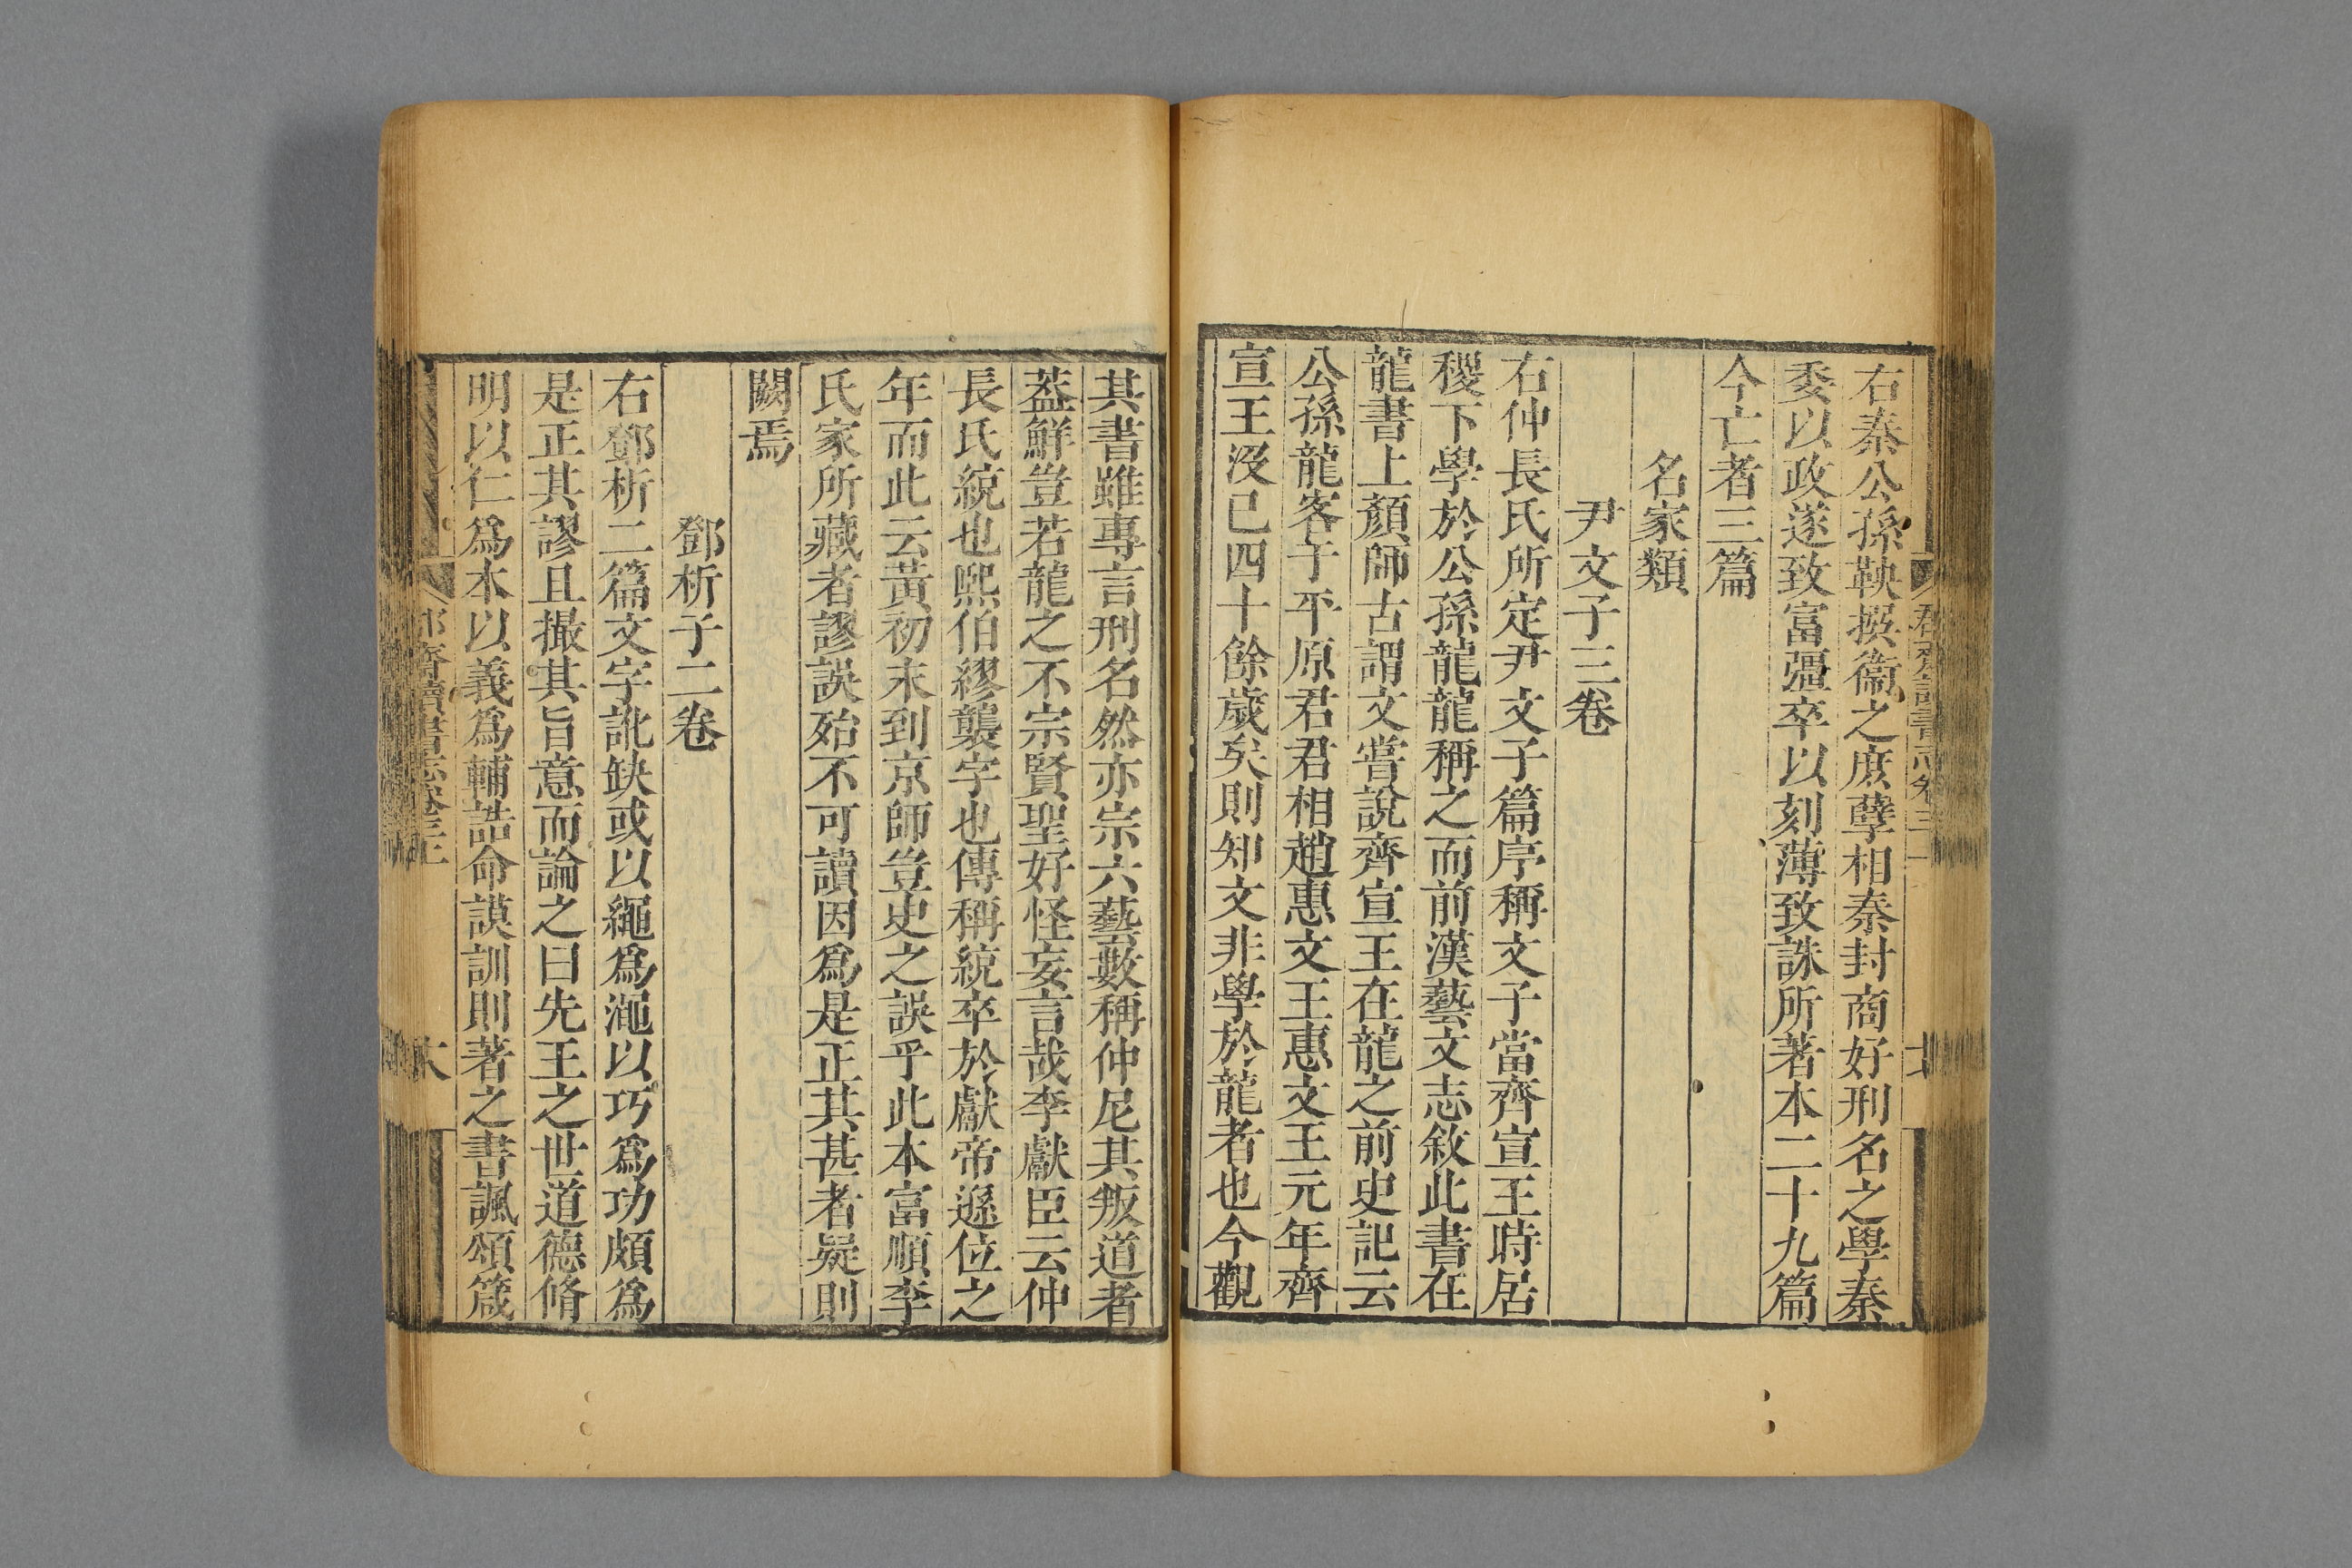 右秦公孫鞅撰衞之庶孽相秦封商好刑名之學秦
委以政遂致富彊卒以刻薄致誅所著本二十九篇
今亡者三篇
名家類
尹文子三卷
右仲長氏所定尹文子篇序稱文子當齊宣王時居
稷下學於公孫龍龍稱之而前漢藝文志敘此書在
龍書上顏師古謂文嘗說齊宣王在龍之前史記云
公孫龍客于平原君君相趙惠文王惠文王元年齊
宣王沒已四十餘歲矣則知文非學於龍者也今觀
其書雖專言刑名然亦宗六藝數稱仲尼其叛道者
葢鮮豈若龍之不宗賢聖好怪妄言哉李獻臣云仲
長氏統也熙伯繆襲字也傳稱統卒於獻帝遜位之
年而此云黃初末到京師豈史之誤乎此本富順李
氏家所藏者謬誤殆不可讀因爲是正其甚者疑則
闕焉
鄧析子二卷
右鄧析二篇文字訛缺或以繩爲澠以巧爲功頗爲
是正其謬且撮其旨意而論之曰先王之世道德脩
明以仁爲本以義爲輔誥命謨訓則著之書諷頌箴
郡齋讀書志卷三上